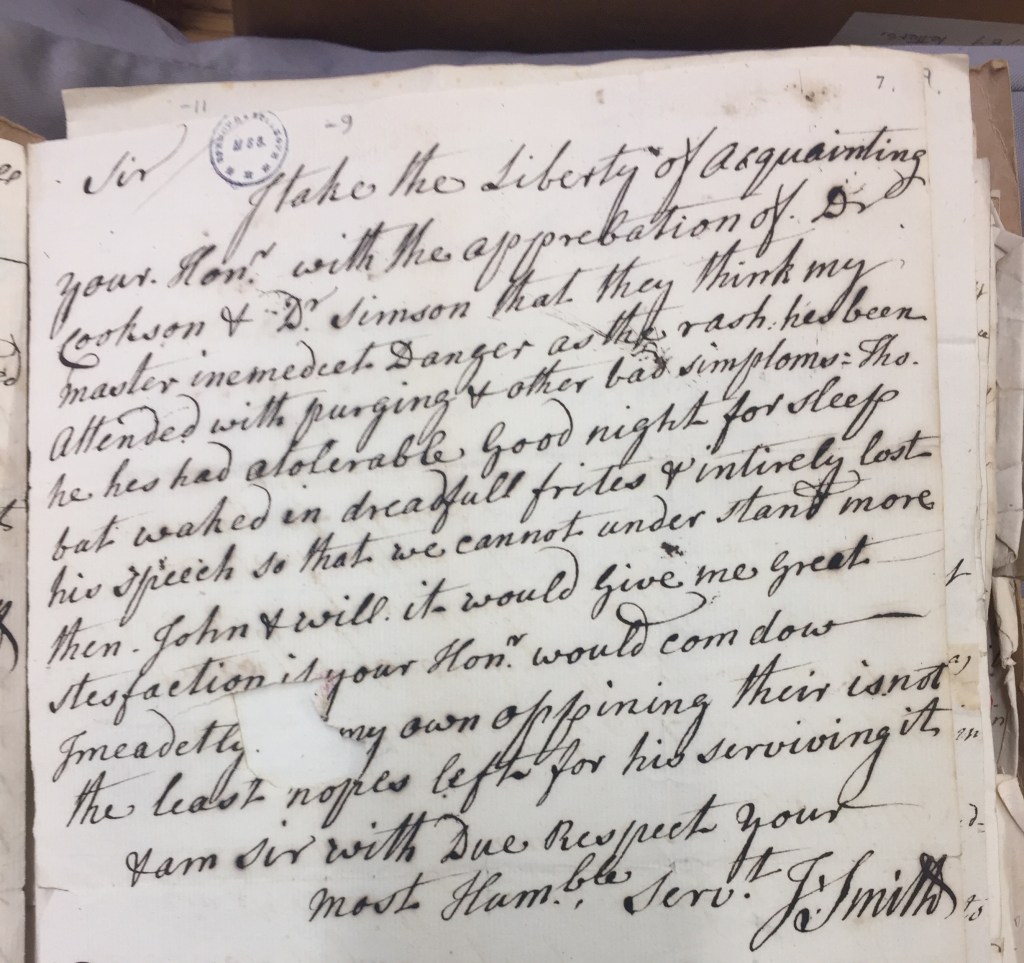 7. 9.
-11
-9
MSS.
Sir
I take the Liberty of acquainting
your Hon.r with the apprebation of Dr
Cookson & Dr. Simson that they think my
master inemedeet Danger as the rash hes been
attended with purging & other bad simptoms = Tho.
he hes had a tolerable Good night for sleep
but waked in dreadfull frites & intirely lost
his speech so that we cannot under stand more
then. John & will. it would Give me Great
stesfaction if your Hon.r would com dow
Imeadetly. my own oppining their is not
the least hopes left for his serviving it
& am Sir with Due Respect your
most Hum.ble Serv.t J: Smith